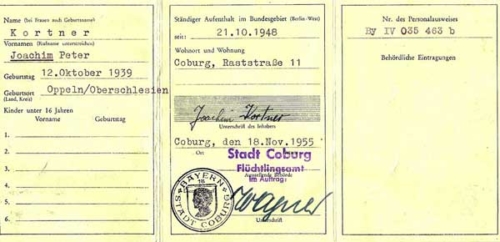 Name (bei Frauen auch Geburtsname)
Kortner
Vornamen (Rufname unterstreichen)
Joachim Peter
Geburtstag 12.Oktober 1939
Geburtsort Oppeln/Oberschlesien
(Land, Kreis)
Kinder unter 16 Jahren
Vorname Geburtstag
1.
2.
3.
4.
5.
6.
Ständiger Aufenthalt im Bundesgebiet (Berlin-West)
seit 21.10.1948
Wohnort und Wohnung
Coburg, Raststraße 11
Joachim Kortner
Unterschrift des Inhabers
Coburg, den 18.Nov.1955
Ort
Stadt Coburg
Flüchtlingsamt
Im Auftrag:
Ausstellende Behörde
BAYERN
16
STADT COBURG
Wagner
Unterschrift
Nr. des Personalausweises
By IV 035 463 b
Behördliche Eintragungen